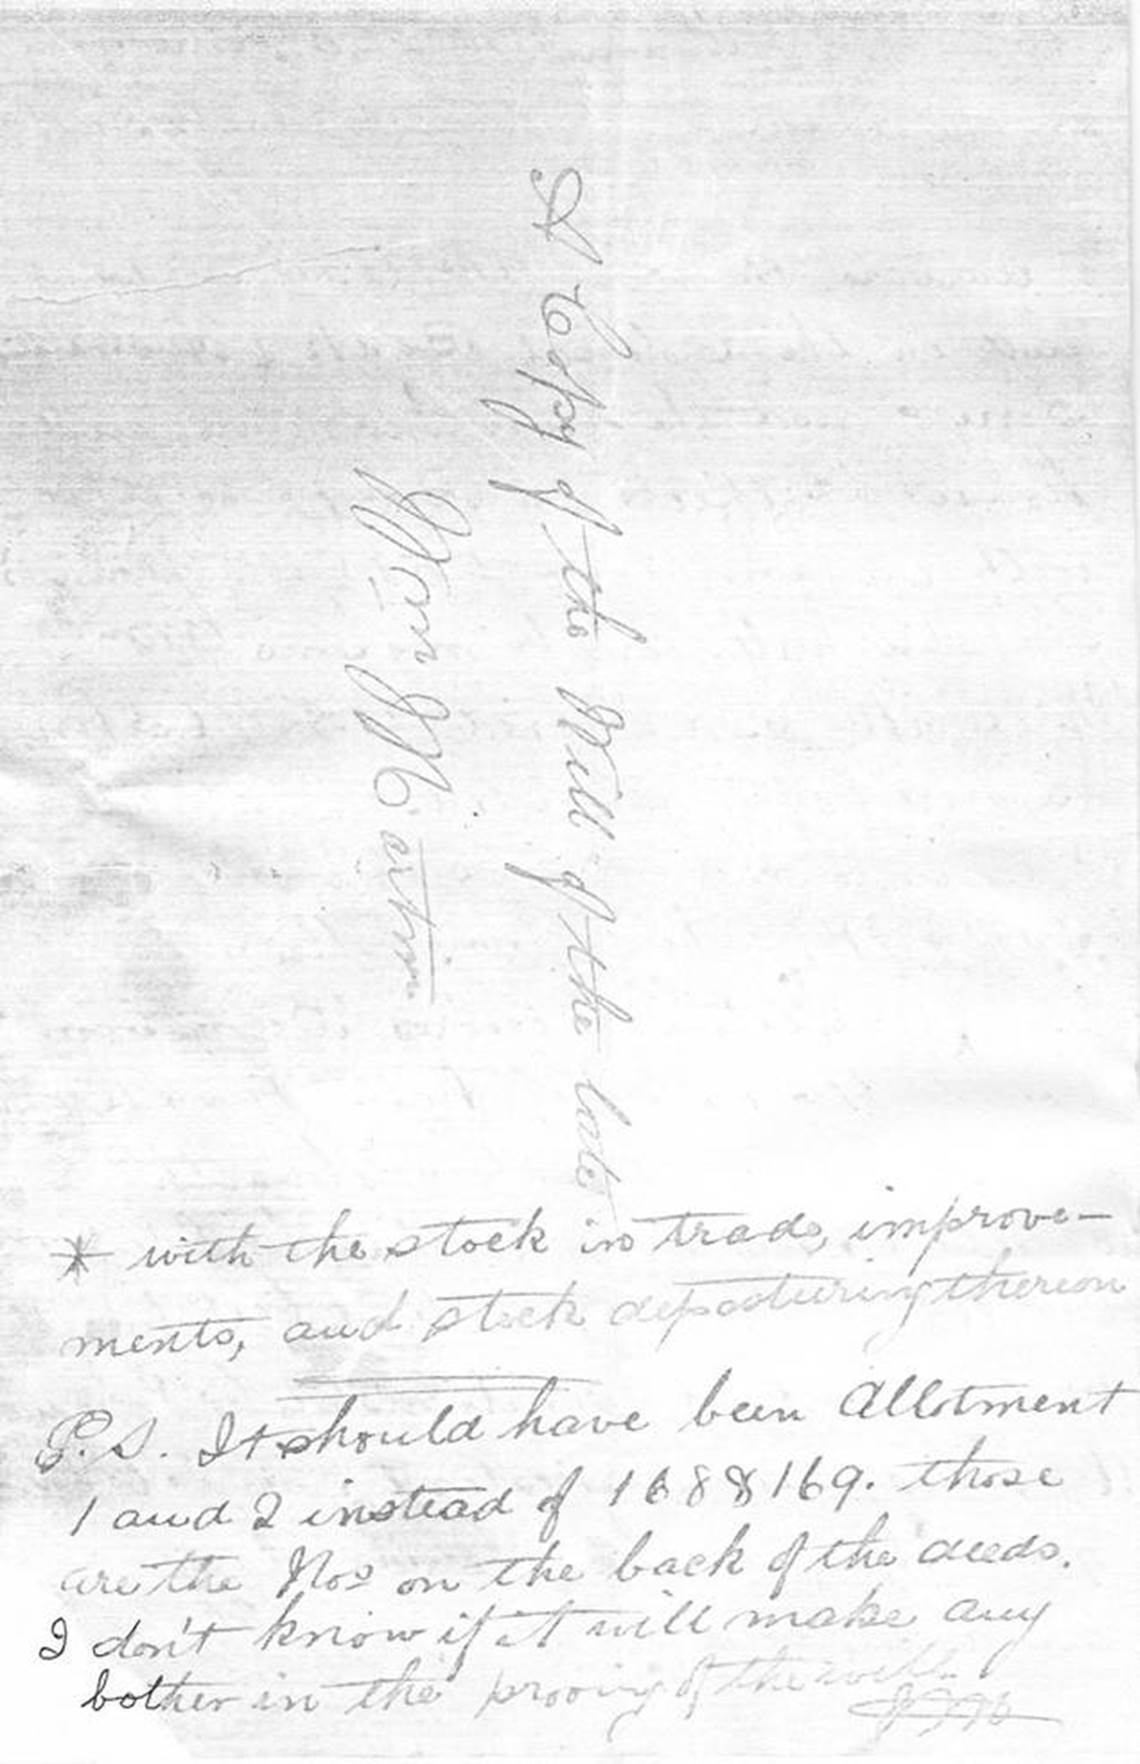 A Copy of the Will of the late
Wm Martin
* with the stock in trade, improve-
ments, and stock depasturing thereon
P.S. It should have been Allotment
1 and 2 instead of 168 & 169. those
are the Nos on the back of the deeds.
I don't know if it will make any
bother in the prooving of the will.